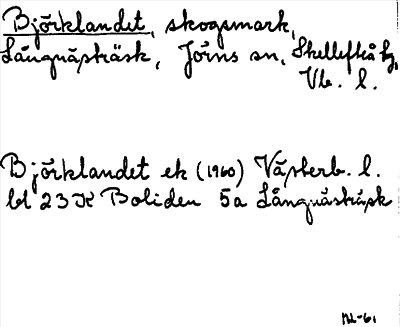 Björklandet, skogsmark,
Långnästräsk, Jörns sn, Skellefteå tg,
Vb. l.
Björklandet ek (1960) Västerb. l.
bl 23K Boliden 5a Långnästräsk